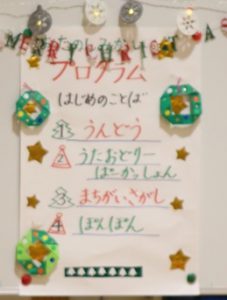 プログラム
はじめのことば
1 うんどう
2 うたおどりー
ぱーかっしょん
3 まちがいさがし
4 ぽんぽん